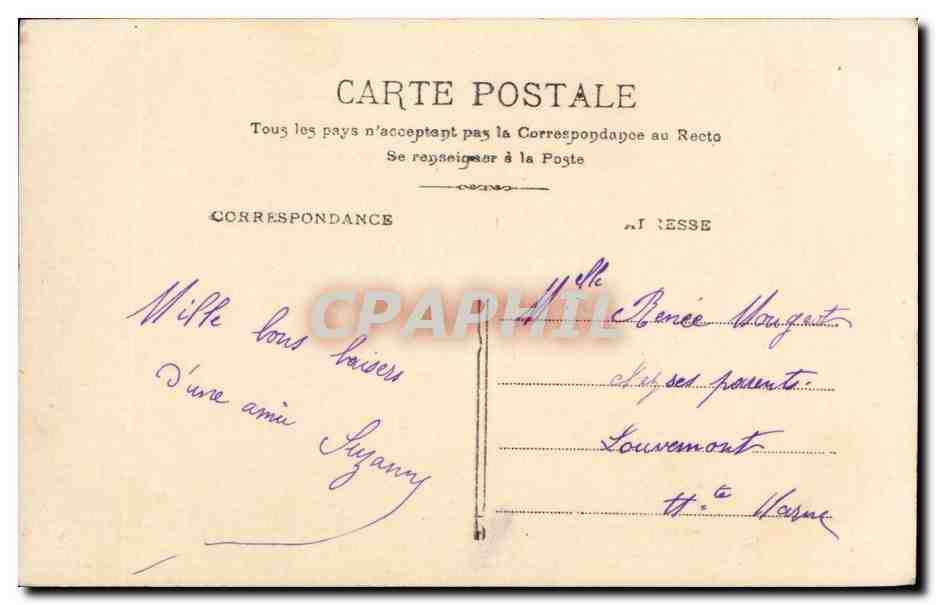 CARTE POSTALE
Tous les pays n'acceptent pas la Correspondance au Recto
Se renseigner à la Poste
CORRESPONDANCE
ADRESSE
Mille bons baisers
d'une amie
Suzanne
Melle Renée Mougeot
chez ses parents.
Louvemont
Hte Marne
CPAPHIL